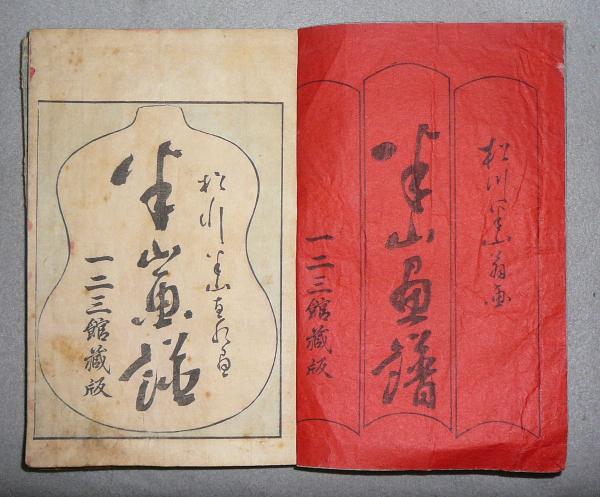 松川半山翁画
半山画譜
一二三館蔵版
松川半山
半山画譜
一二三館蔵版